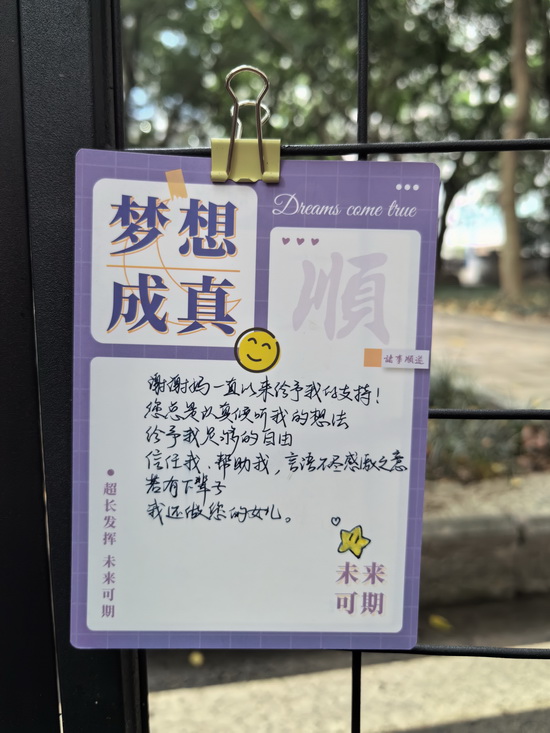 梦想
成真
Dreams come true
順
诸事顺遂
谢谢妈一直以来给予我的支持！
您总是认真倾听我的想法
给予我足够的自由
信任我、帮助我，言语不尽感激之意
若有下辈子
我还做您的女儿。
超长发挥 未来可期
未来
可期